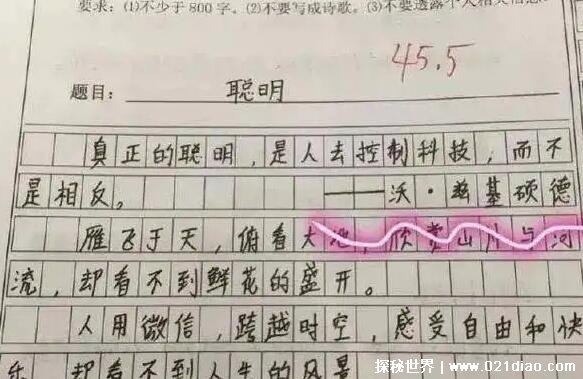 要求：(1)不少于800字。(2)不要写成诗歌。(3)不要透露个人相关信息。
45.5
题目：聪明
真正的聪明，是人去控制科技，而不
是相反。——沃·兹基硕德
雁飞于天，俯看大地，欣赏山川与河
流，却看不到鲜花的盛开。
人用微信，跨越时空，感受自由和快
乐，却看不到人生的风景
探秘世界|www.021diao.com